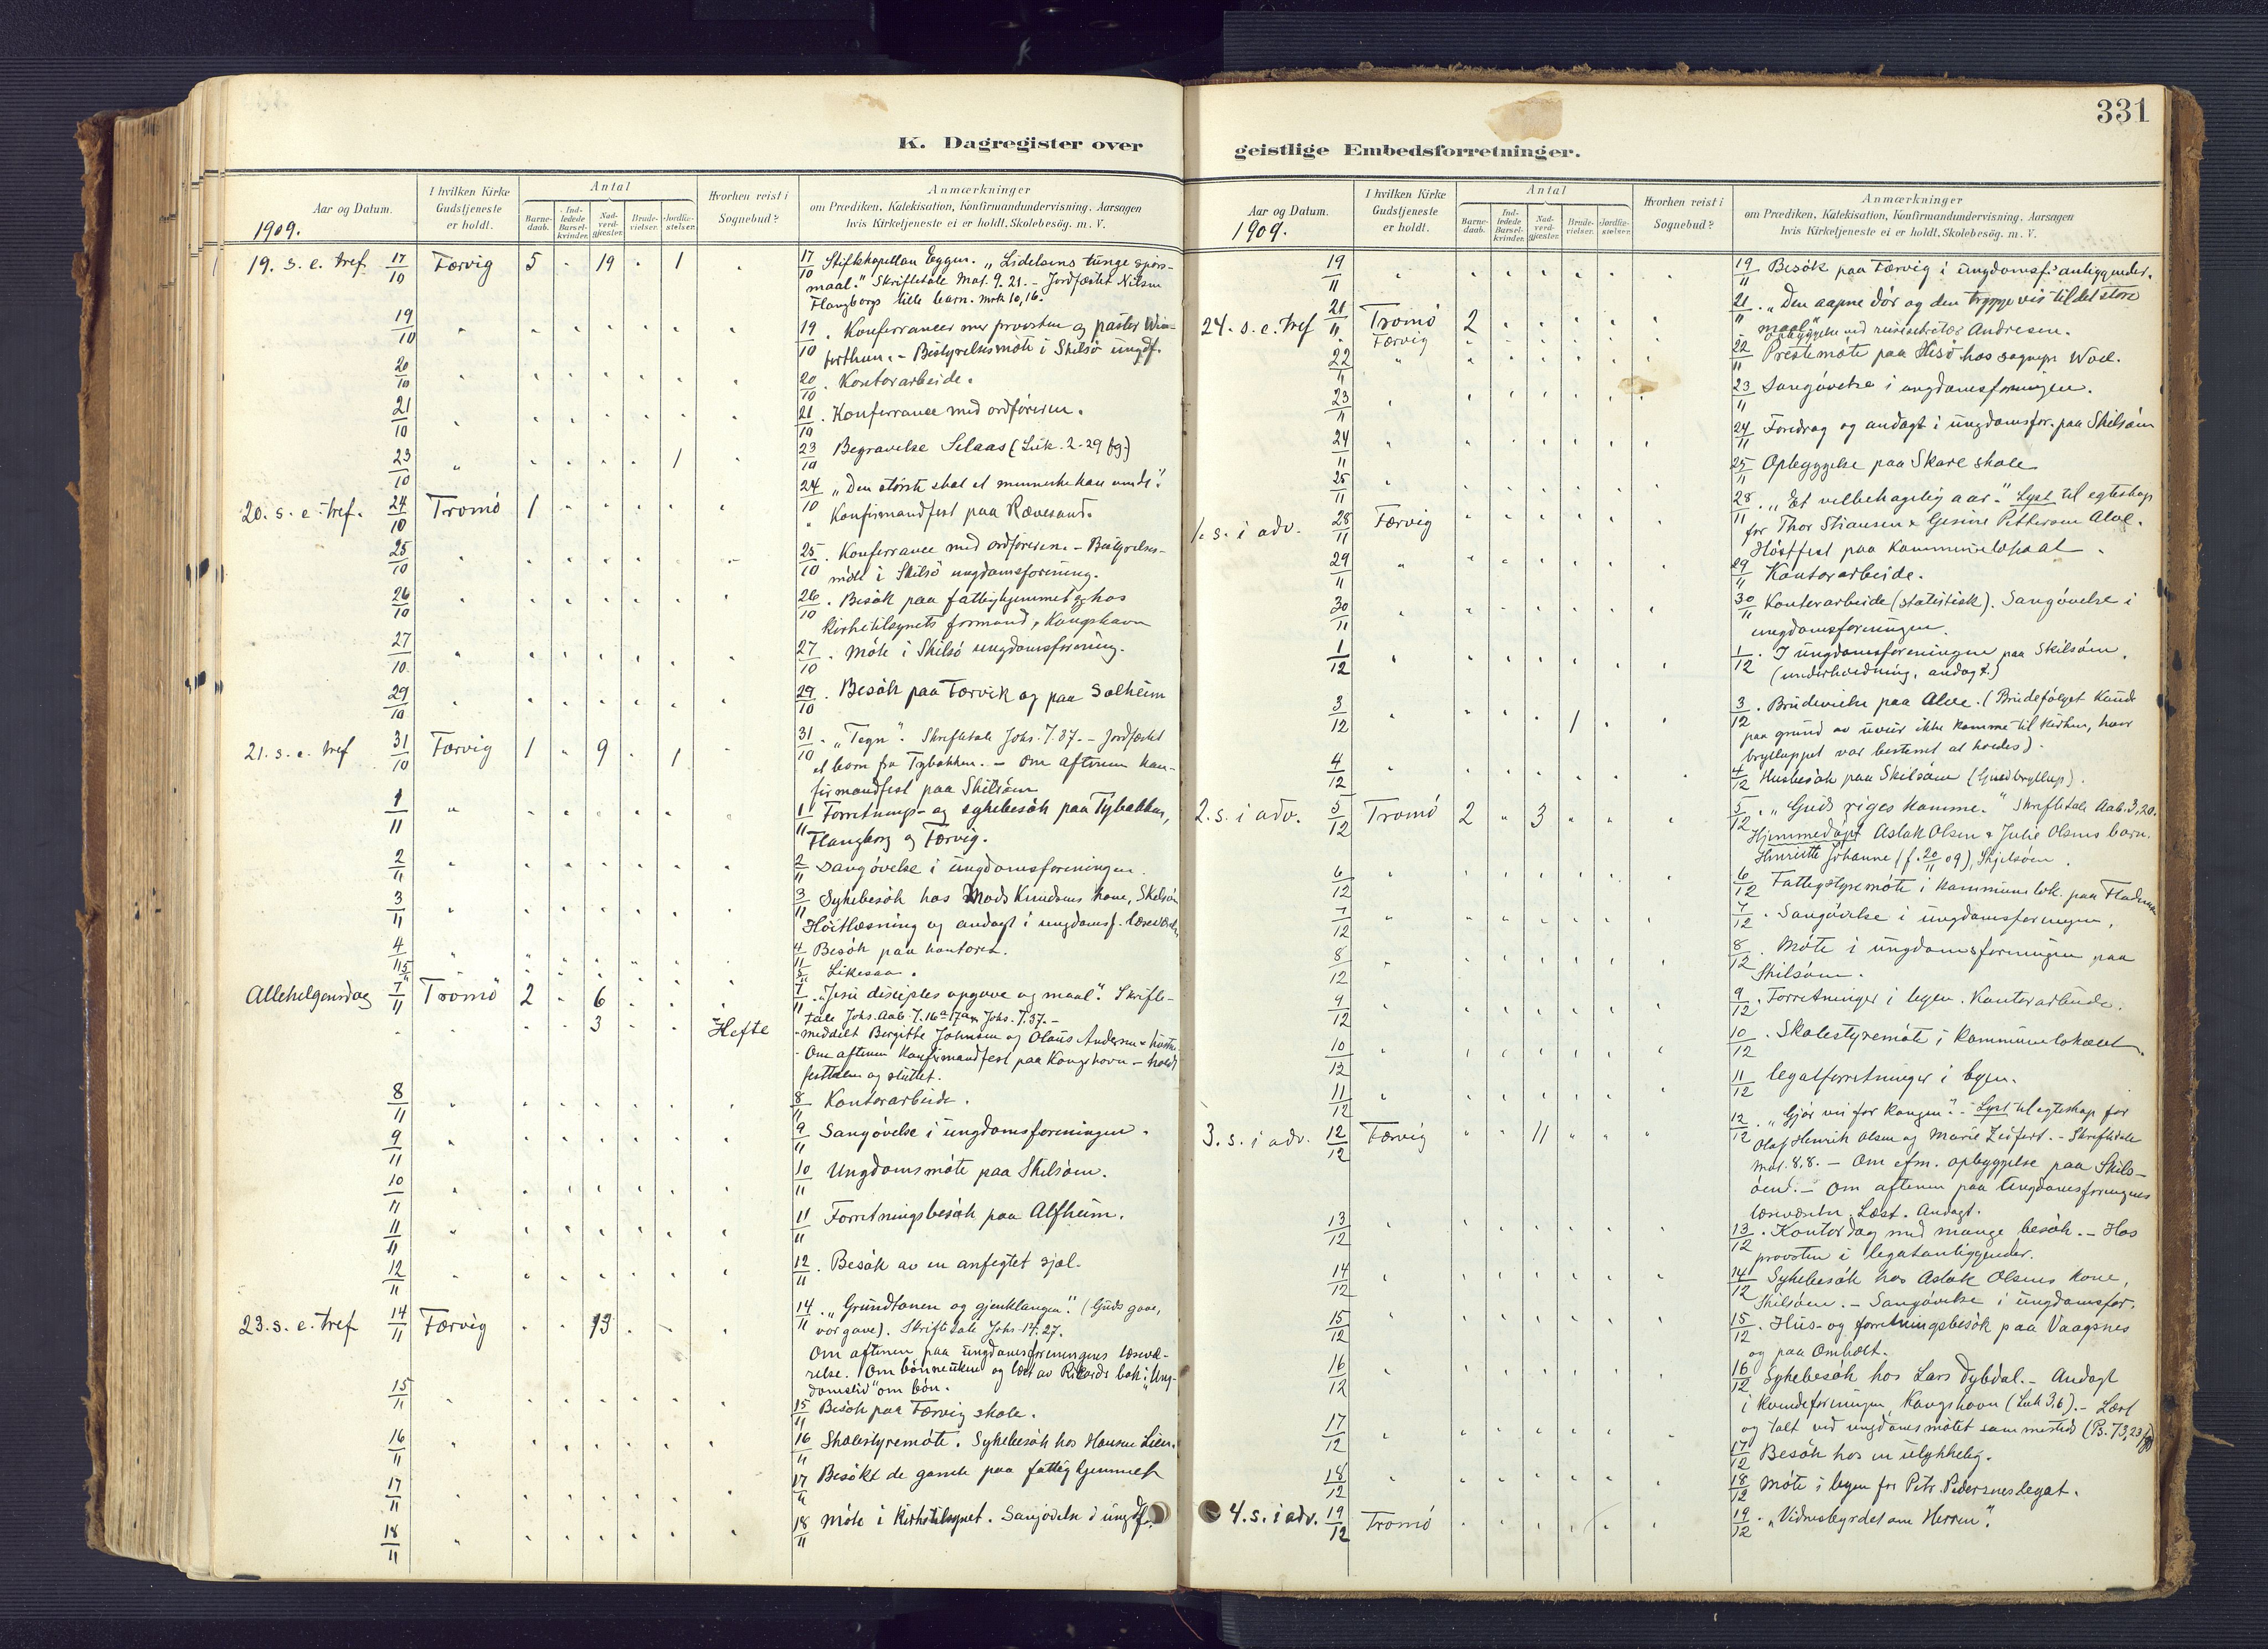 K. Dagregister over
Aar og Datum.
I hvilken Kirke Gudstjeneste er holdt.
Antal
Barne-daab.
Ind-ledede Barsel-kvinder.
Nad-verd-gjæster.
Brude-vielser.
Jordfæ-stelser.
Hvorhen reist i Sognebud?
Anmærkninger
om Prædiken, Katekisation, Konfirmandundervisning. Aarsagen
hvis Kirketjeneste ei er holdt, Skolebesög. m. V.
1909.
19. s. e. tref. 17/10 Færvig 5 " 19 " 1 " 17/10 Stiftskapellan Eggen. „Lidelsens tunge spørs-
maal." Skriftetale Mat. 9.21. - Jordfæstet Nilsen
Flangborgs lille barn. Mrk 10,16.
19/10 " 19/10. Konferrancer med provsten og pastor
- Bestyrelsesmöte i Skilsö ungdf.
20/10 " 20/10. Kontorarbeide.
21/10 " 21/10. Konferrance med ordföreren.
23/10 " 1 23/10 Begravelse Selaas (Luk. 2-29 fg.)
20. s. e. tref. 24/10 Tromö 1 24/10 „Den störste skat et menneske kan eie."
" Konfirmandfest paa Rævesand.
25/10 " 25/10. Konferrance med ordföreren. - Bestyrelses-
möte i Skilsö ungdomsforening.
26/10 " 26/10. Besök paa fattighjemmet og hos
kirketilsynets formand, Kongshavn
27/10 " 27/10. Möte i Skilsö ungdomsforening.
29/10 " 29/10. Besök paa Færvik og paa Solheim
21. s. e. tref 31/10 Færvig 1 " 9 " 1 31/10. „Tegn". Skriftetale Johs. 7.37. - Jordfæstet
et barn fra Tybakken. - Om aftenen kon-
firmandfest paa Skilsöen
1/11 " 1/11 Forretnings- og sykebesök paa Tybakken,
Flangborg og Færvig.
2/11 " 2/11 Sangövelse i ungdomsforeningen.
3/11 " 3/11 Sykebesök hos Mads Knudsens kone, Skilsöen
Höitlæsning og andagt i ungdomsf. læseværelse
4/11 " 4/11 Besök paa kontoret.
5/11 5/11 Likesaa.
Allehelgensdag 7/11 Tromö 2 " 6 7/11. „Jesu disciples opgave og maal". Skrifte-
tale Johs. Aab. 7.16a 17a Johs. 7.37. -
3 Hefte - meddelt Birgitte Johnsen og Olaus Andersen & hustru
- Om aftenen konfirmandfest paa Kongshavn - holdt
festtalen og sluttet.
8/11 " 8/11 Kontorarbeide.
9/11 " 9/11 Sangövelse i ungdomsforeningen.
10/11 " 10/11 Ungdomsmöte paa Skilsöen.
11/11 " 11/11 Forretningsbesök paa Alfheim.
12/11 " 12/11. Besök av en anfegtet sjæl.
23. s. e. tref 14/11 Færvig 13 14/11. „Grundtonen og gjenklangen". (Guds gave,
vor gave). Skriftetale Johs. 14.27.
Om aftenen paa ungdomsforeningens læsevæ-
relse. (Om bönneuken og læst av Rikards bok: „Ung-
domsliv" om bön.
15/11 " 15/11 Besök paa Færvig skole.
16/11 " 16/11 Skolestyremöte. Sykebesök hos Hansen Lien.
17/11 " 17/11 Besökt de gamle paa fattighjemmet
18/11 " 18/11 Möte i kirketilsynet. Sangövelse i ungdf.
331
geistlige Embedsforretninger.
Aar og Datum.
I hvilken Kirke Gudstjeneste er holdt.
Antal
Barne-daab.
Ind-ledede Barsel-kvinder.
Nad-verd-gjæster.
Brude-vielser.
Jordfæ-stelser.
Hvorhen reist i Sognebud?
Anmærkninger
om Prædiken, Katekisation, Konfirmandundervisning. Aarsagen
hvis Kirketjeneste ei er holdt, Skolebesög. m. V.
1909.
19/11 " 19/11 Besök paa Færvig i ungdomsf.s anliggender.
24. s. e. tref 21/11 Tromö 2 21/11. „Den aapne dör og den trygge vei til det store
maal."
" Færvig Opbyggelse ved reisesekretær Andresen.
22/11 " 22/11 Prestemöte paa Hisö hos sognepr. Woel.
23/11 " 23/11 Sangövelse i ungdomsforeningen.
24/11 " 24/11 Foredrag og andagt i ungdomsfor. paa Skilsöen
25/11 " 25/11 Opbyggelse paa Skare skole
1. s. i adv. 28/11 Færvig 28/11. „Et velbehagelig aar." Lyst til egteskap
for Thor Stiansen & Gesine Pettersen Alve.
Höstfest paa Kommunelokalet.
29/11 " 29/11 Kontorarbeide.
30/11 " 30/11 Kontorarbeide (statistisk). Sangövelse i
ungdomsforeningen.
1/12 " 1/12. I ungdomsforeningen paa Skilsöen.
(underholdning, andagt)
3/12 " 1 3/12. Brudevielse paa Alve. (Brudefölget kunde
paa grund av uveir ikke komme til kirken, hvor
bryllupet var bestemt at holdes).
4/12 " 4/12 Husbesök paa Skilsöen (Guldbryllup).
2. s. i adv. 5/12 Tromö 2 " 3 5/12. „Guds riges komme." Skriftetale Aab. 3,20.
Hjemmedöpt Aslak Olsen & Julie Olsens barn
Henriette Johanne (f. 20/11 09), Skjelsöen.
6/12 " 6/12 Fattigstyremöte i kommunelok. paa
7/12 " 7/12. Sangövelse i ungdomsforeningen.
8/12 " 8/12. Möte i ungdomsforeningen paa
Skilsöen.
9/12 " 9/12. Forretninger i byen. Kontorarbeide.
10/12 " 10/12. Skolestyremöte i kommunelokalet.
11/12 " 11/12 Legatforretninger i byen.
3. s. i adv. 12/12 Færvig 11 12/12. „Gjör vei for kongen". - Lyst til egteskap for
Olaf Henrik Olsen og Marie Zeifert. - Skriftetale
Mat. 8.8. - Om efm. opbyggelse paa Skils-
öen. - Om aftenen paa Ungdomsforeningens
læseværelse. Læst. Andagt.
13/12 " 13/12. Kontordag med mange besök. - Hos
provsten i legatanliggender.
14/12 " 14/12 Sykebesök hos Aslak Olsens kone,
Skilsöen. - Sangövelse i ungdomsfor.
15/12 " 15/12. Hus- og forretningsbesök paa Vaagsnes
og paa Omholt.
16/12 " 16/12 Sykebesök hos Lars Dybdal. - Andagt
i kvindeforeningen, Kongshavn (Luk 3,6). - Læst
og talt ved ungdomsmötet sammesteds (Ps. 73,23 fg)
17/12 " 17/12 Besök hos en ulykkelig.
18/12 " 18/12 Möte i byen for Petr. Pedersens legat.
4. s. i adv. 19/12 Tromö 19/12. „Vidnesbyrdet om Herren".